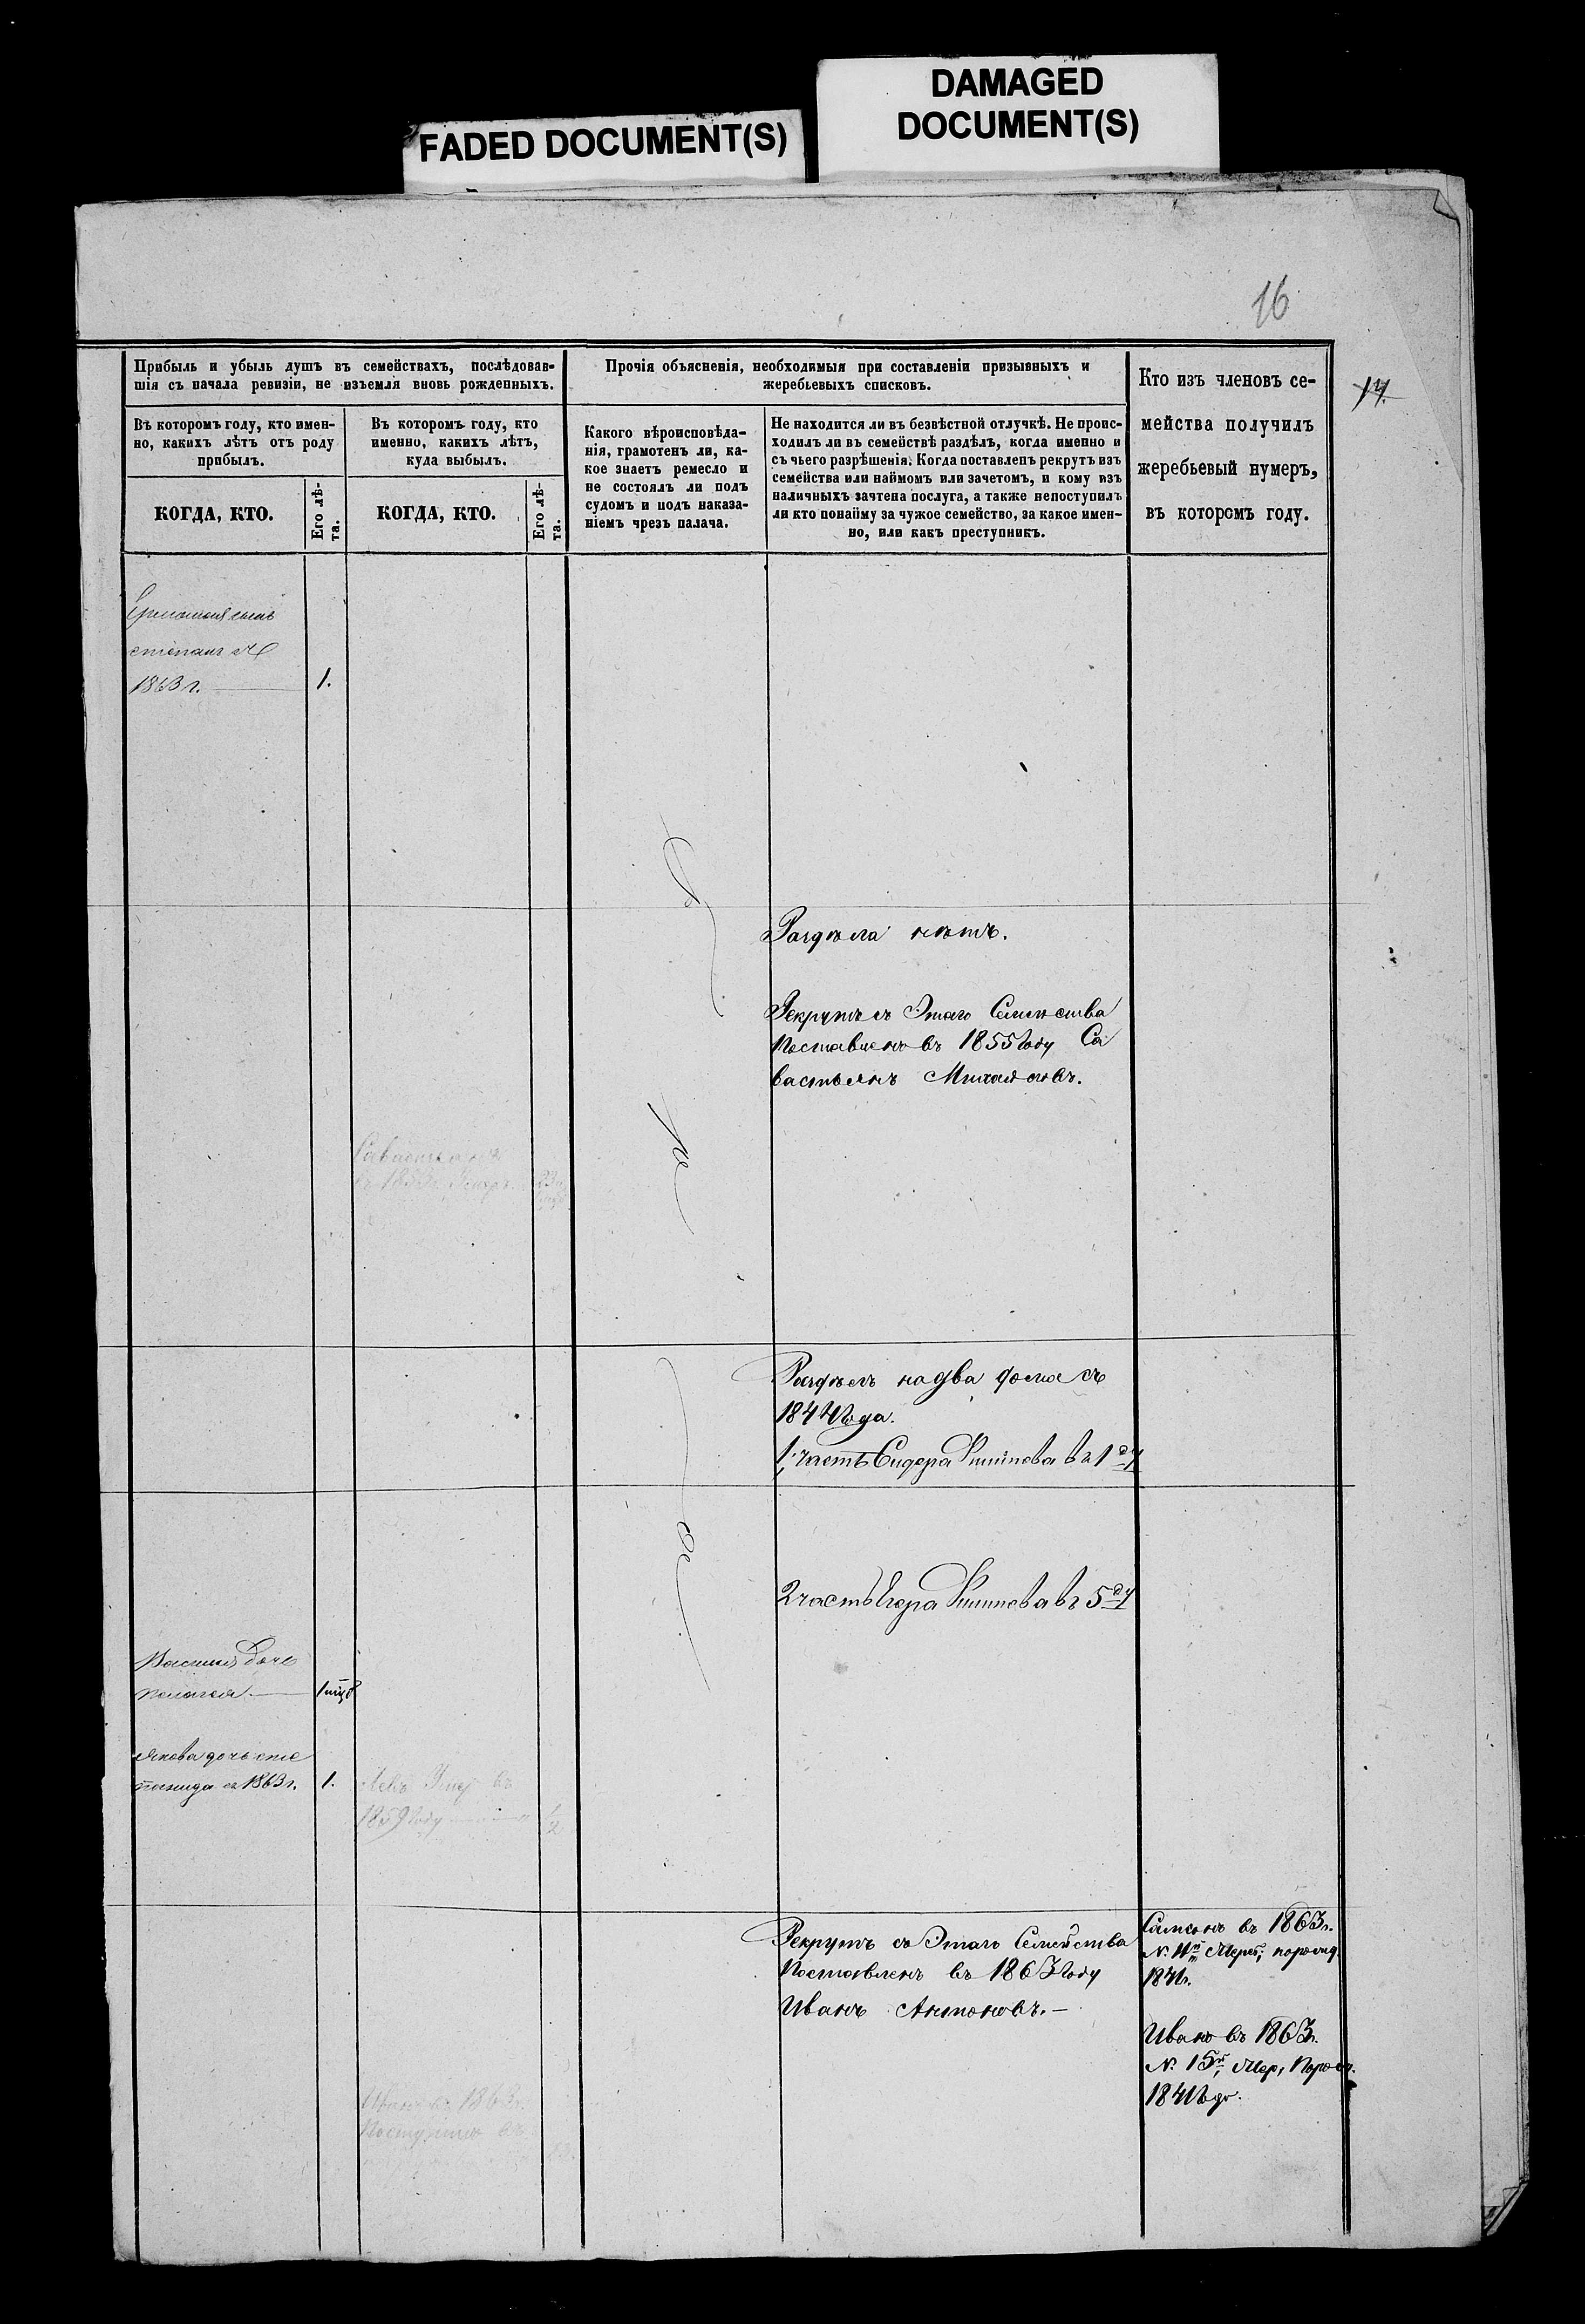 FADED DOCUMENT(S)
DAMAGED
DOCUMENT(S)
16
17.
Прибыль и убыль душъ въ семействахъ, послѣдовав-
шія съ начала ревизіи, не изъемля вновь рожденныхъ.
Въ которомъ году, кто имен-
но, какихъ лѣтъ отъ роду
прибылъ.
КОГДА, КТО.
Его лѣ-
та.
Въ которомъ году, кто
именно, какихъ лѣтъ,
куда выбылъ.
КОГДА, КТО.
Его лѣ-
та.
Прочія объясненія, необходимыя при составленіи призывныхъ и
жеребьевыхъ списковъ.
Какого вѣроисповѣда-
нія, грамотенъ ли, ка-
кое знаетъ ремесло и
не состоялъ ли подъ
судомъ и подъ наказа-
ніемъ чрезъ палача.
Не находится ли въ безвѣстной отлучкѣ. Не проис-
ходилъ ли въ семействѣ раздѣлъ, когда именно и
съ чьего разрѣшенія: Когда поставленъ рекрутъ изъ
семейства или наймомъ или зачетомъ, и кому изъ
наличныхъ зачтена послуга, а также непоступилъ
ли кто понайму за чужое семейство, за какое имен-
но, или какъ преступникъ.
Кто изъ членовъ се-
мейства получилъ
жеребьевый нумеръ,
въ которомъ году.
сынъ
степанъ
1863 г. 1.
Раздѣла нѣтъ.
Рекрутъ съ Этаго Семейства
Поставленъ въ 1855 Году Са
вастьянъ Михайловъ.
Савастьянъ
Раздѣлъ на два дома съ
1844 Года.
1. часть Сидера Филипова въ 1
2 часть Филипова въ 5
Василія Дочь
пелагея. 1
Якова дочь сте
панида съ 1863 г. 1.
Левъ Умер въ
1859 Году 1/2
Рекрутъ съ Этаго Семейства
Поставленъ въ 1863 Году
Иванъ Антоновъ.
Самсонъ въ 1863 г.
1841 г.
Иванъ въ 1863 г.
№ 15
1841 Году.
Иванъ въ 1863
Поступилъ въ